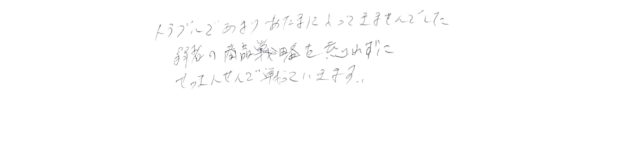 トラブルであまりあたまに入ってきませんでした
弱者の商品戦略を忘れずに
せっぷんせんで戦っていきます。